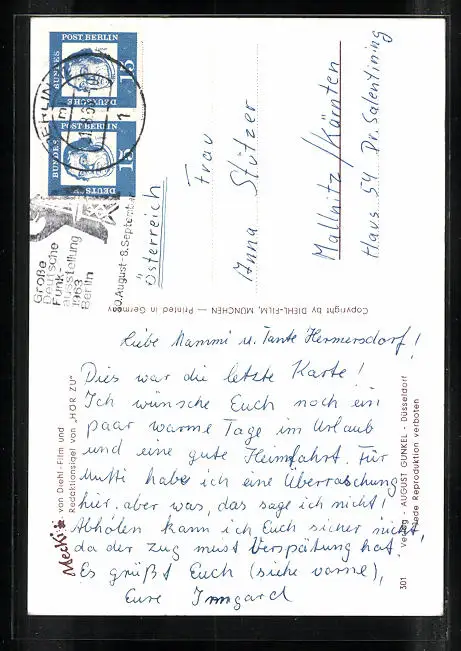 BUNDES
POST BERLIN
DEUTSCHE
15
BUNDES
POST BERLIN
15
BERLIN
1
Große
Deutsche
Funk-
ausstellung
1963
Berlin
30. August-8. September
Österreich
Frau
Anna Stützer
Mallnitz/Kärnten
Haus 54 Dr. Salentining
Copyright by DIEHL-FILM, MÜNCHEN — Printed in Germany
Liebe Mammi u. Tante Hermersdorf!
Dies war die letzte Karte!
Ich wünsche Euch noch ein
paar warme Tage im Urlaub
und eine gute Heimfahrt. Für
Mutti habe ich eine Überraschung
hier. aber was, das sage ich nicht!
Abholen kann ich Euch sicher nicht,
da der Zug meist Verspätung hat.
Es grüßt Euch (siehe vorne),
Eure Irmgard
Mecki
von Diehl-Film und
Redaktionsigel von "HÖR ZU"
301 Verlag - AUGUST GUNKEL - Düsseldorf
Jede Reproduktion verboten